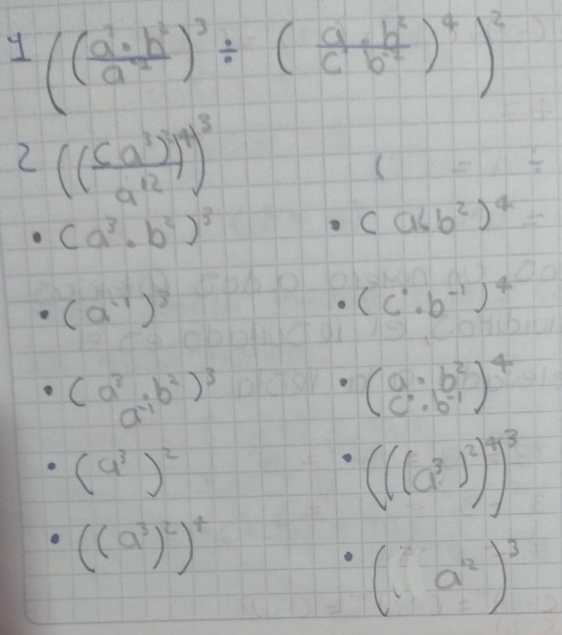 1 ((a³·b²/a⁻¹)³ ÷ (a·b²/c b⁻¹)⁴)²
2 (((a³)²/a¹²)⁴)³
• (a³·b²)³ • (a·b²)⁴
• (a⁻¹)³ • (c·b⁻¹)⁴
• (a³·b²/a⁻¹)³ • (a·b²/c·b⁻¹)⁴
• (a³)² • (((a³)²)⁴)³
• ((a³)²)⁴ • (a¹²)³